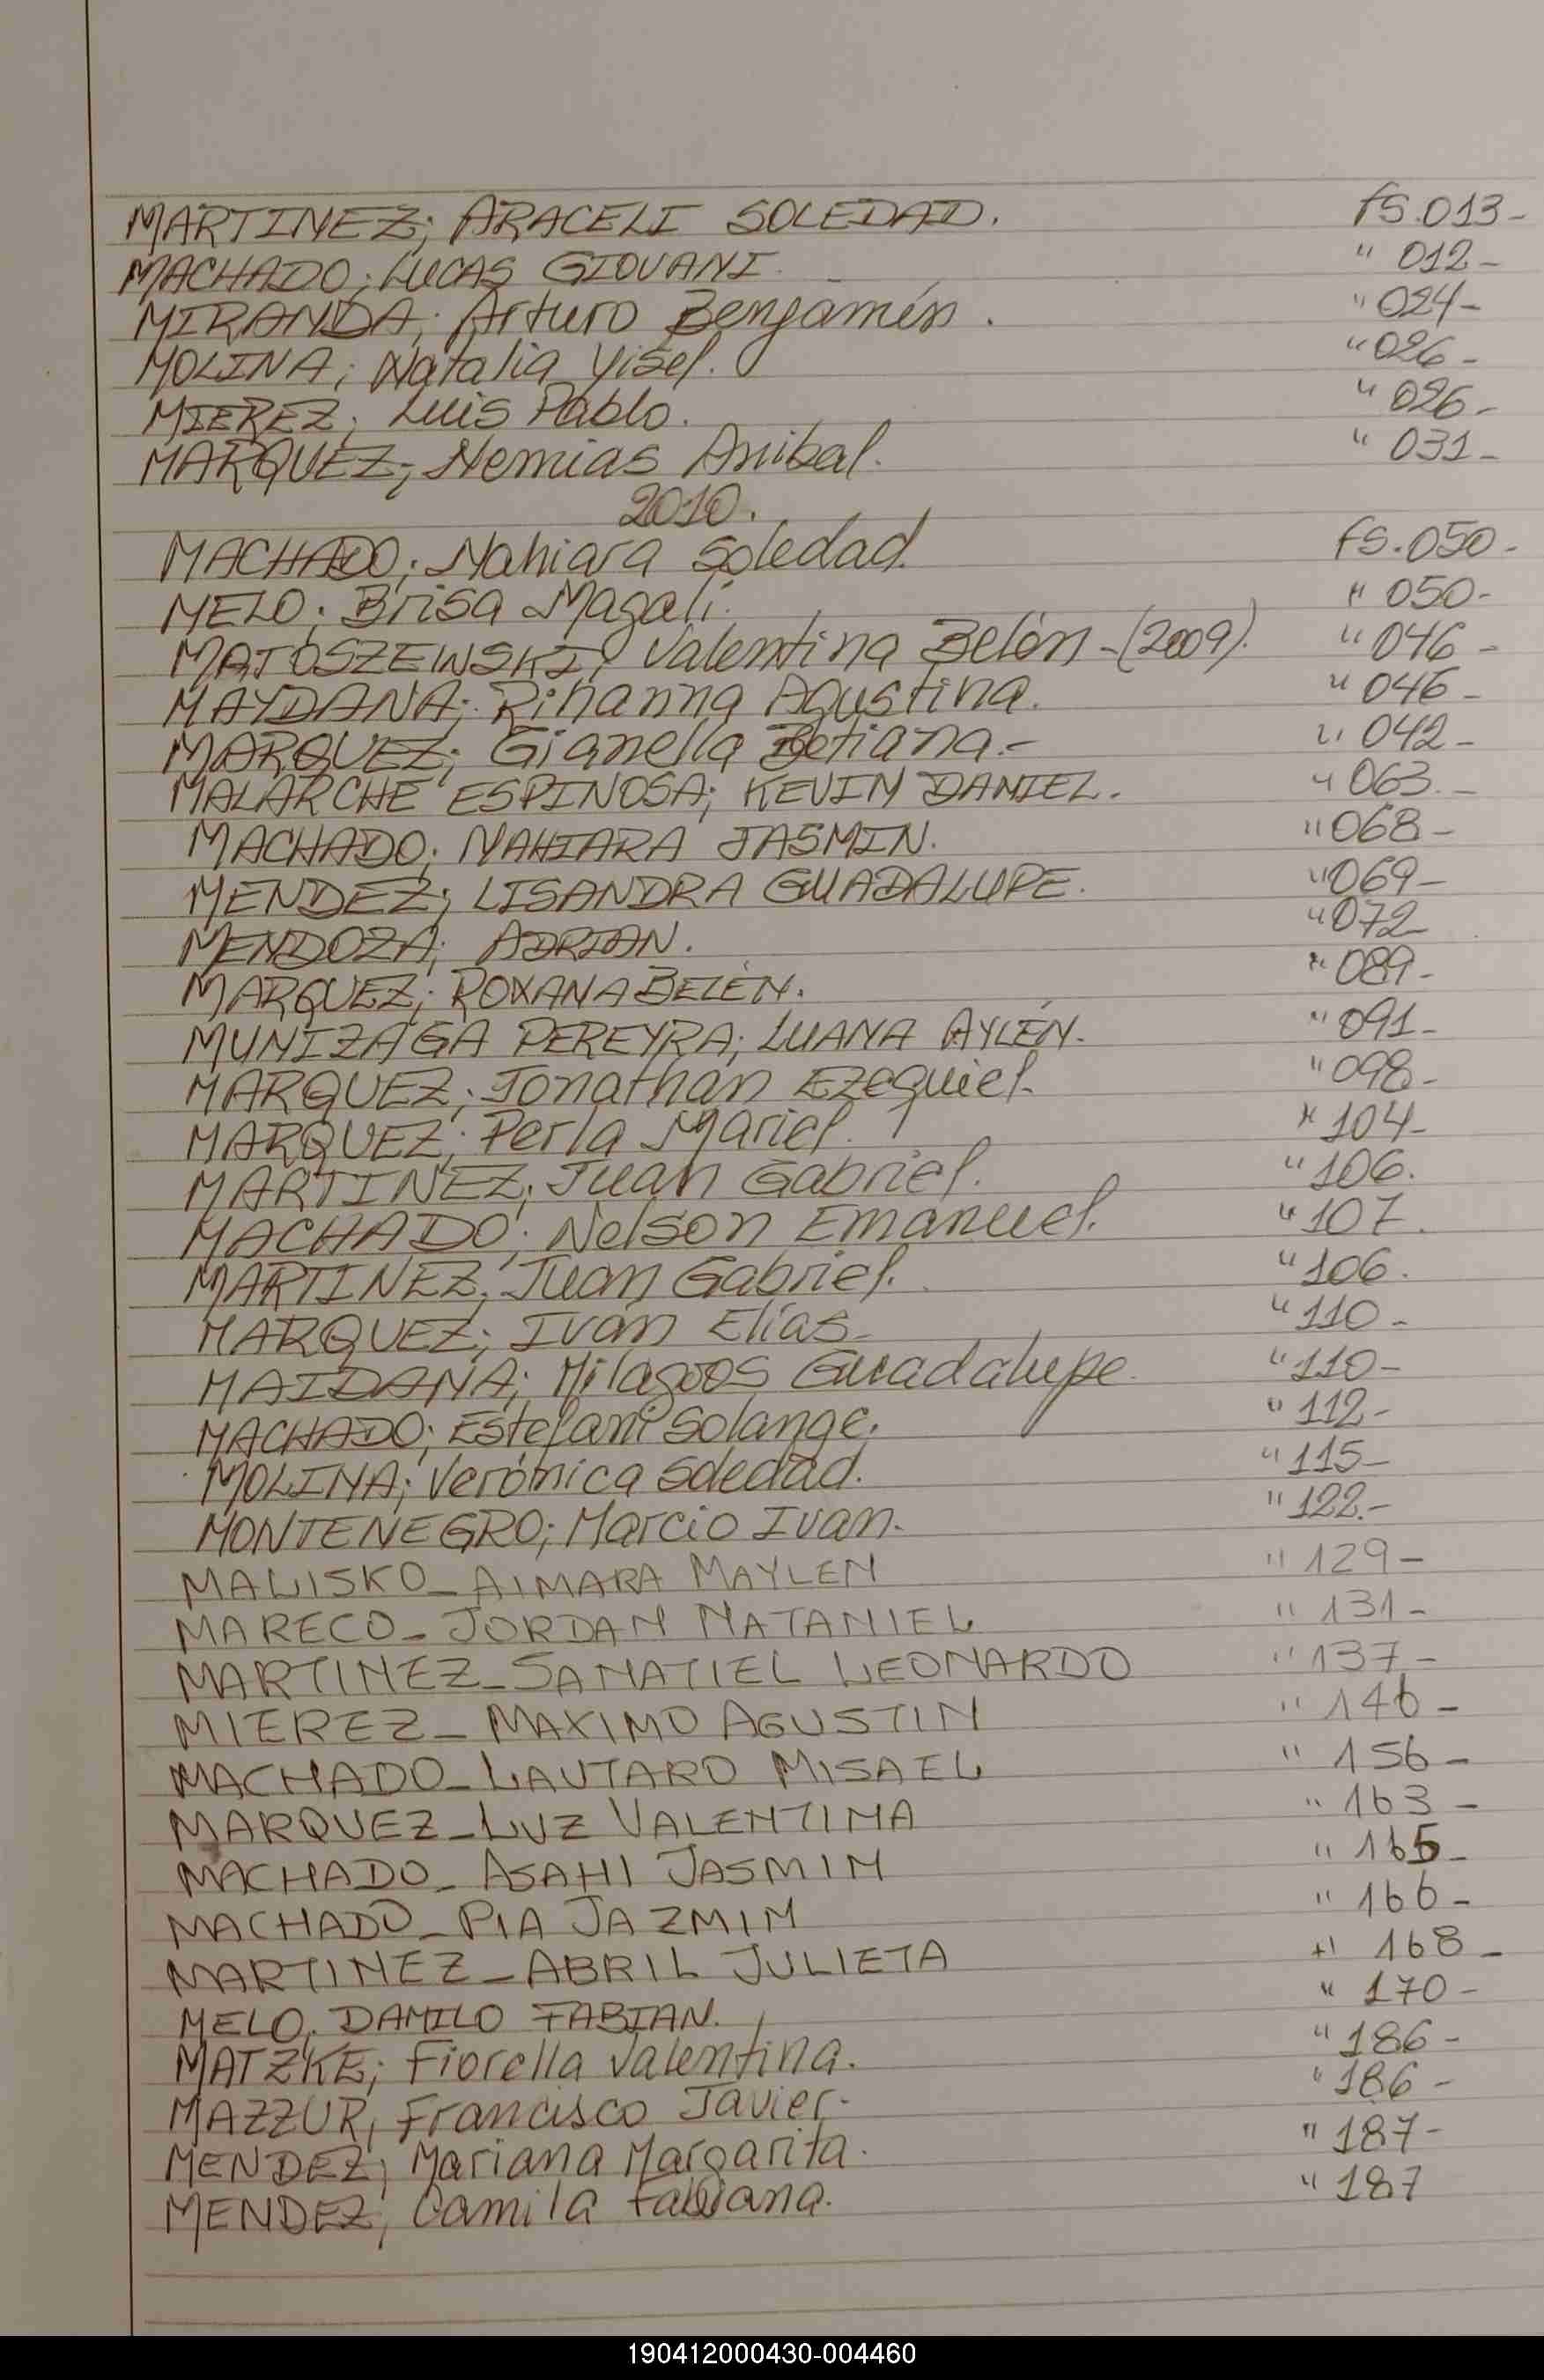 MARTINEZ; ARACELI SOLEDAD. FS.013-
MACHADO; LUCAS GIOVANI. " 012-
MIRANDA; Arturo Benjamín. " 024-
MOLINA; Natalia Yisel. " 026-
MIEREZ; Luis Pablo. " 026-
MARQUEZ; Nemias Anibal. " 031-
2010.
MACHADO; Nahiara Soledad. FS.050-
MELO; Brisa Magalí. " 050-
MATOSZEWSKI; Valentina Belén-(2009). " 046-
MAYDANA; Rihanna Agustina. " 046-
MARQUEZ; Gianella Betiana.- " 042-
MALARCHE ESPINOSA; KEVIN DANIEL. " 063.-
MACHADO; NAHIARA JASMIN. " 068-
MENDEZ; LISANDRA GUADALUPE. " 069-
MENDOZA; ADRIAN. " 072
MARQUEZ; ROXANA BELÉN. " 089-
MUNIZAGA PEREYRA; LUANA AYLÉN. " 091-
MARQUEZ; Jonathan Ezequiel. " 098-
MARQUEZ; Perla Mariel. " 104-
MARTINEZ; Juan Gabriel. " 106.
MACHADO; Nelson Emanuel. " 107.
MARTINEZ; Juan Gabriel. " 106.
MARQUEZ; Iván Elías. " 110-
MAIDANA; Milagros Guadalupe. " 110-
MACHADO; Estefani Solange. " 112-
MOLINA; Verónica Soledad. " 115-
MONTENEGRO; Marcio Ivan. " 122.-
MALISKO_AIMARA MAYLEN " 129-
MARECO_JORDAN NATANIEL " 131-
MARTINEZ_SANATIEL LEONARDO " 137-
MIEREZ_MAXIMO AGUSTIN " 146-
MACHADO_LAUTARO MISAEL " 156-
MARQUEZ_LUZ VALENTINA " 163-
MACHADO_ASAHI JASMIN " 165-
MACHADO_PIA JAZMIN " 166-
MARTINEZ_ABRIL JULIETA " 168-
MELO. DANILO FABIAN. " 170-
MATZKE; Fiorella Valentina. " 186-
MAZZUR, Francisco Javier. " 186-
MENDEZ; Mariana Margarita. " 187-
MENDEZ; Camila Fabiana. " 187
190412000430-004460